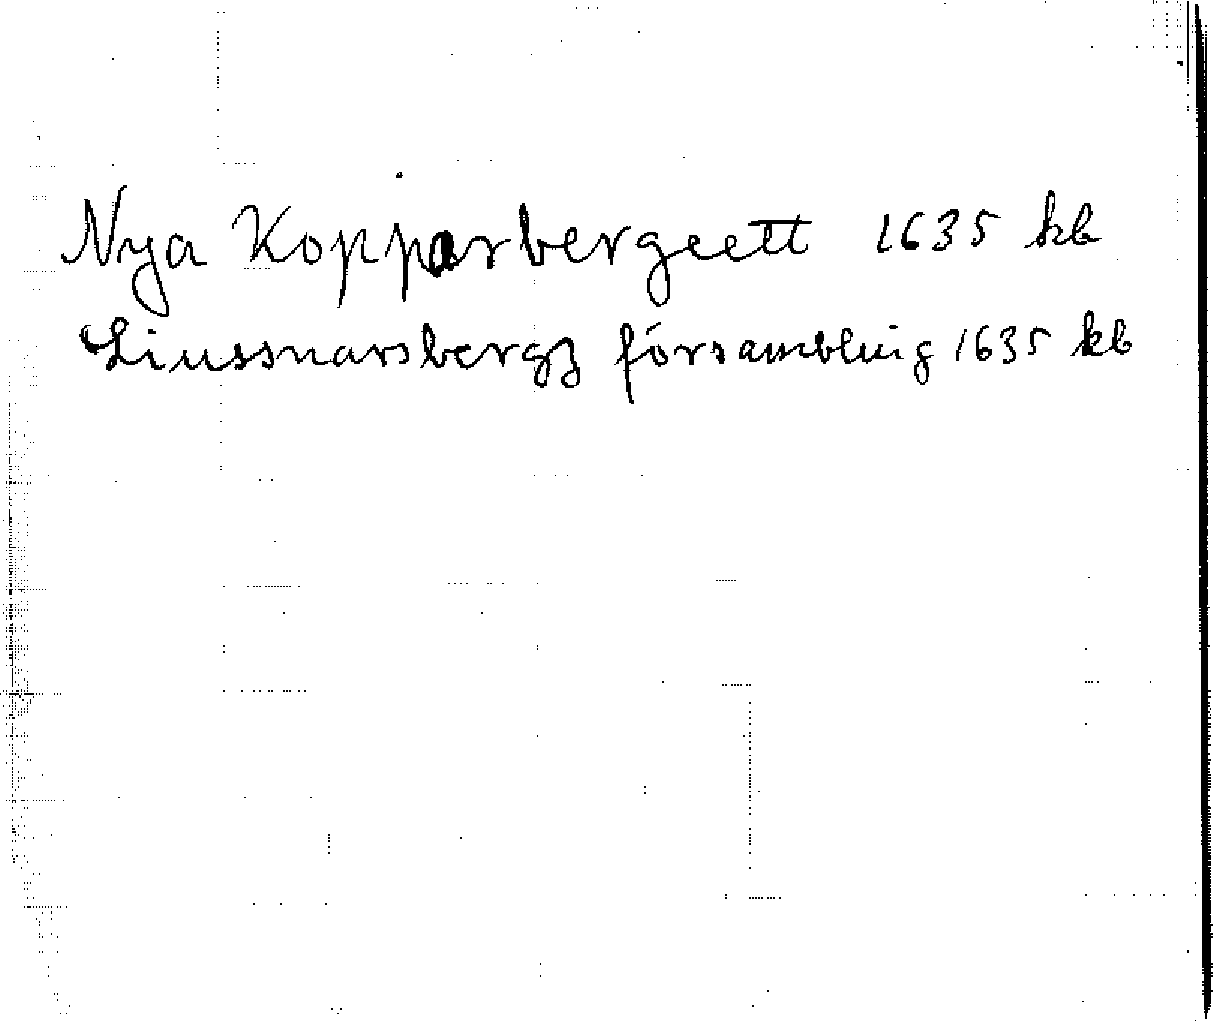 Nya Kopparbergeett 1635 kb
Liussnarsbergz försambling 1635 kb